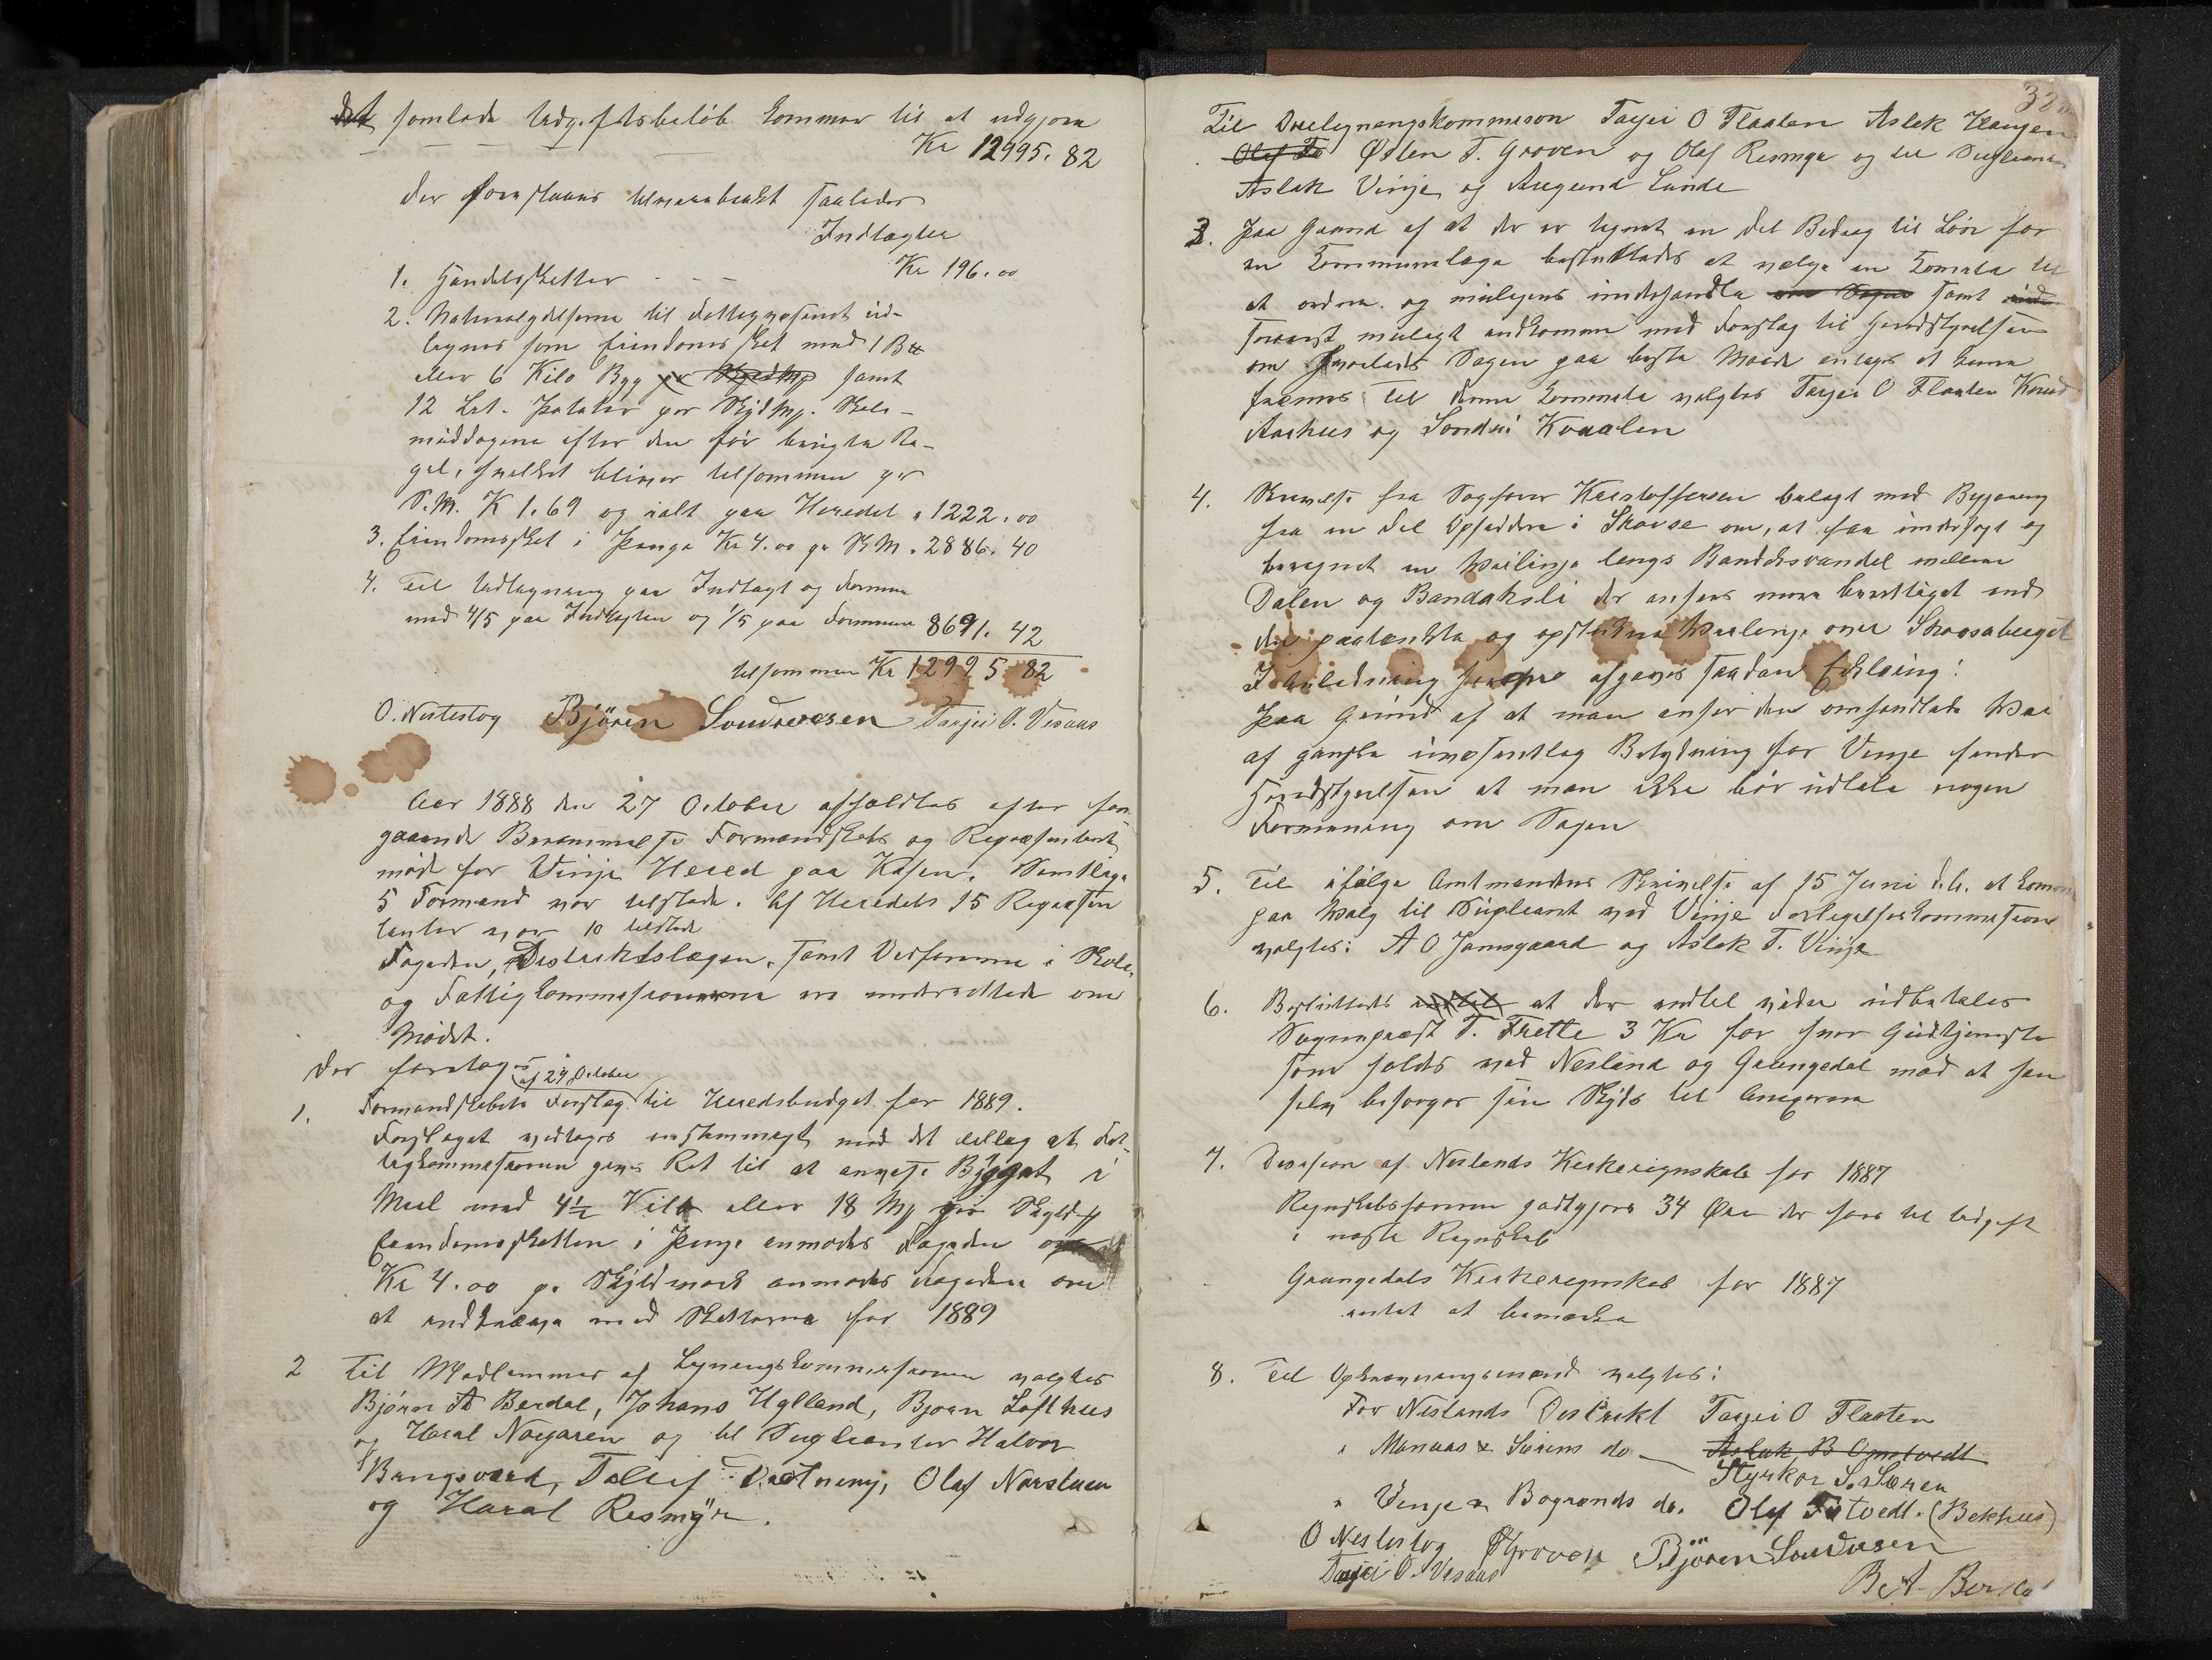 det samlede Udgiftsbeløb kommer til at udgjøre
Kr 12995.82
der foreslaaes tilveiebragt saaledes
Indtægter
1. Handelsskatter - - Kr 196.00
2. Naturalydelserne til Fattigvæsenet ud-
lignes som Eiendomsskat med 1 B
eller 6 Kilo Byg pr Skyldmk samt
12 Lit. Poteter per Skyldmk. Skole-
middagene efter den før brugte Re-
gel, hvilket bliver tilsammen pr
S.M. K 1.69 og ialt paa Heredet " 1222.00
3. Eiendomsskat i Penge Kr 4.00 pr S.M. " 2886.40
4. Til Udligning paa Indtægt og Formue
med 4/5 paa Indtægten og 1/5 paa Formuen 8691.42
tilsammen Kr 12995.82
O. Nestestog Björen Sondresen Tarjei O. Vesaas
Aar 1888 den 27 October afholdtes efter for-
gaaende Berammelse Formandskabs og Repræsentant
møde for Vinje Hered paa Kosen. Samtlige
5 Formænd var tilstede. Af Heredets 15 Repræsen
tanter var 10 tilstede
Fogeden, Distriktslægen, samt Ordførerne i Skole
og Fattigkommissionerne var underrettede om
Mødet.
Der foretages
af 29 October
1. Formandskabets Forslag til Heredsbudget for 1889.
Forslaget vedtages enstemmigt med det tillæg at Fat-
tigkommissionen gives Ret til at anvise Bygget i
Meel med 4½ Kilo eller 18 Mk pr Skyldmk
Eiendomsskatten i Penge anmodes Fogeden om
Kr 4.00 pr Skyldmark anmodes Fogeden om
at inddrive med Skatterne for 1889
2 Til Medlemmer af Ligningskommissionen valgtes
Bjørn A Berdal, Johans Hylland, Bjørn Lofthus
og Haral Nøgaren og til Suplianter Halvor
Bringsværd, Tollef Vaatning, Olaf Norstuen
og Haral Resmÿr.
Til Overligningskommission Tarjei O Flaaten Aslak Haugen
Olaf Fo Østen T. Groven og Olaf Resmyr og til Suplianter
Aslak Vinje og Augund Lunde
3. Paa Grund af at der er tegnet en del Bidrag til Løn for
en Kommunelæge besluttedes at vælge en Komite til
at ordne og muligens underhandle om Sagen samt
snarest muligt indkomme med Forslag til Heredsstyrelsen
om hvorledes Sagen paa beste Maade antages at kunne
fremmes. Til denne Kommite valgtes Tarjei O Flaaten Knud
Aarhus og Sondre Kvaalen
4. Skrivelse fra Sagfører Kristoffersen bilagt med Begjæring
fra en del Opsiddere i Skafse om, at faa undersøgt og
beregnet en Veilinje langs Bandaksvandet mellem
Dalen og Bandaksli der ansees mere berettiget end
den paatænkte og opstukne Veilinje over Skafsaberget
I Anledning heraf afgaves saadan Erklæring:
Paa Grund af at man anser den omhandlede Vei
af ganske uvæsentlig Betydning for Vinje finder
Heredsstyrelsen at man ikke bør udtale nogen
Formening om Sagen
5. Til ifølge Amtmandens Skrivelse af 15 Juni d.A. at komme
paa Valg til Supleant ved Vinje Forligelseskommission
valgtes: A O Jamsgaard og Aslak T. Vinje
6. Besluttedes indtil at der indtil videre udbetales
Sognepræst T. Frette 3 Kr for hver Gudstjeneste
som holdes ved Nesland og Grungedal mod at han
selv besørger sin Skyds til Annexerne
7. Decision af Neslands Kirkeregnskab for 1887
Regnskabsføreren godtgjøres 34 Øre der føres til Udgift
i neste Regnskab
Grungedals Kirkeregnskab for 1887
intet at bemærke
8. Til Opkrævningsmænd valgtes:
For Neslands Distrikt Tarjei O Flaaten
" Maanaas & Særens do Aslak B Omtvedt
Styrkor S. Særen
" Vinje & Bøgrænds do. Olaf Fitvedt. (Bekhus)
O Nestestog ØGroven Björen Sondresen
Tarjei O. Vesaas
B A Berdal